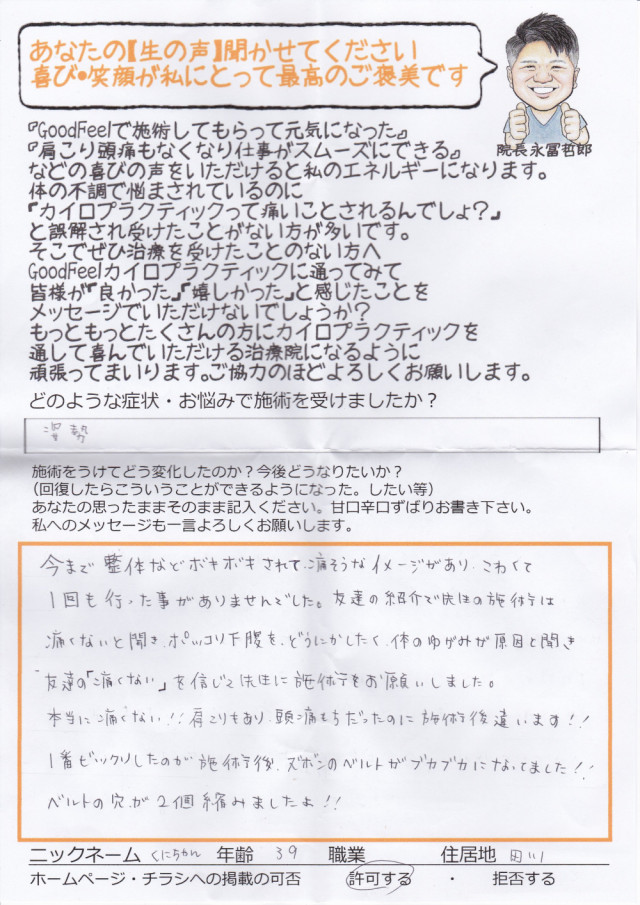 あなたの【生の声】聞かせてください
喜び・笑顔が私にとって最高のご褒美です
院長 永冨哲郎
『GoodFeelで施術してもらって元気になった』
『肩こり頭痛もなくなり仕事がスムーズにできる』
などの喜びの声をいただけると私のエネルギーになります。
体の不調で悩まされているのに
「カイロプラクティックって痛いことされるんでしょ？」
と誤解され受けたことがない方が多いです。
そこでぜひ治療を受けたことのない方へ
GoodFeelカイロプラクティックに通ってみて
皆様が「良かった」「嬉しかった」と感じたことを
メッセージでいただけないでしょうか？
もっともっとたくさんの方にカイロプラクティックを
通して喜んでいただける治療院になるように
頑張ってまいります。ご協力のほどよろしくお願いします。
どのような症状・お悩みで施術を受けましたか？
施術をうけてどう変化したのか？今後どうなりたいか？
（回復したらこういうことができるようになった。したい等）
あなたの思ったままそのまま記入ください。甘口辛口ずばりお書き下さい。
私へのメッセージも一言よろしくお願いします。
今まで整体などボキボキされて、痛そうなイメージがあり、こわくて
1回も行った事がありませんでした。友達の紹介で先生の施術は
痛くないと聞き、ポッコリ下腹を、どうにかしたく、体のゆがみが原因と聞き
友達の「痛くない」を信じて先生に施術をお願いしました。
本当に痛くない!! 肩こりもあり、頭痛もちだったのに施術後違います!!
1番ビックリしたのが施術後、ズボンのベルトがブカブカになってました!!
ベルトの穴が2個縮みましたよ!!
ニックネーム くにちゃん 年齢 39 職業 住居地 田川
ホームページ・チラシへの掲載の可否 許可する ・ 拒否する